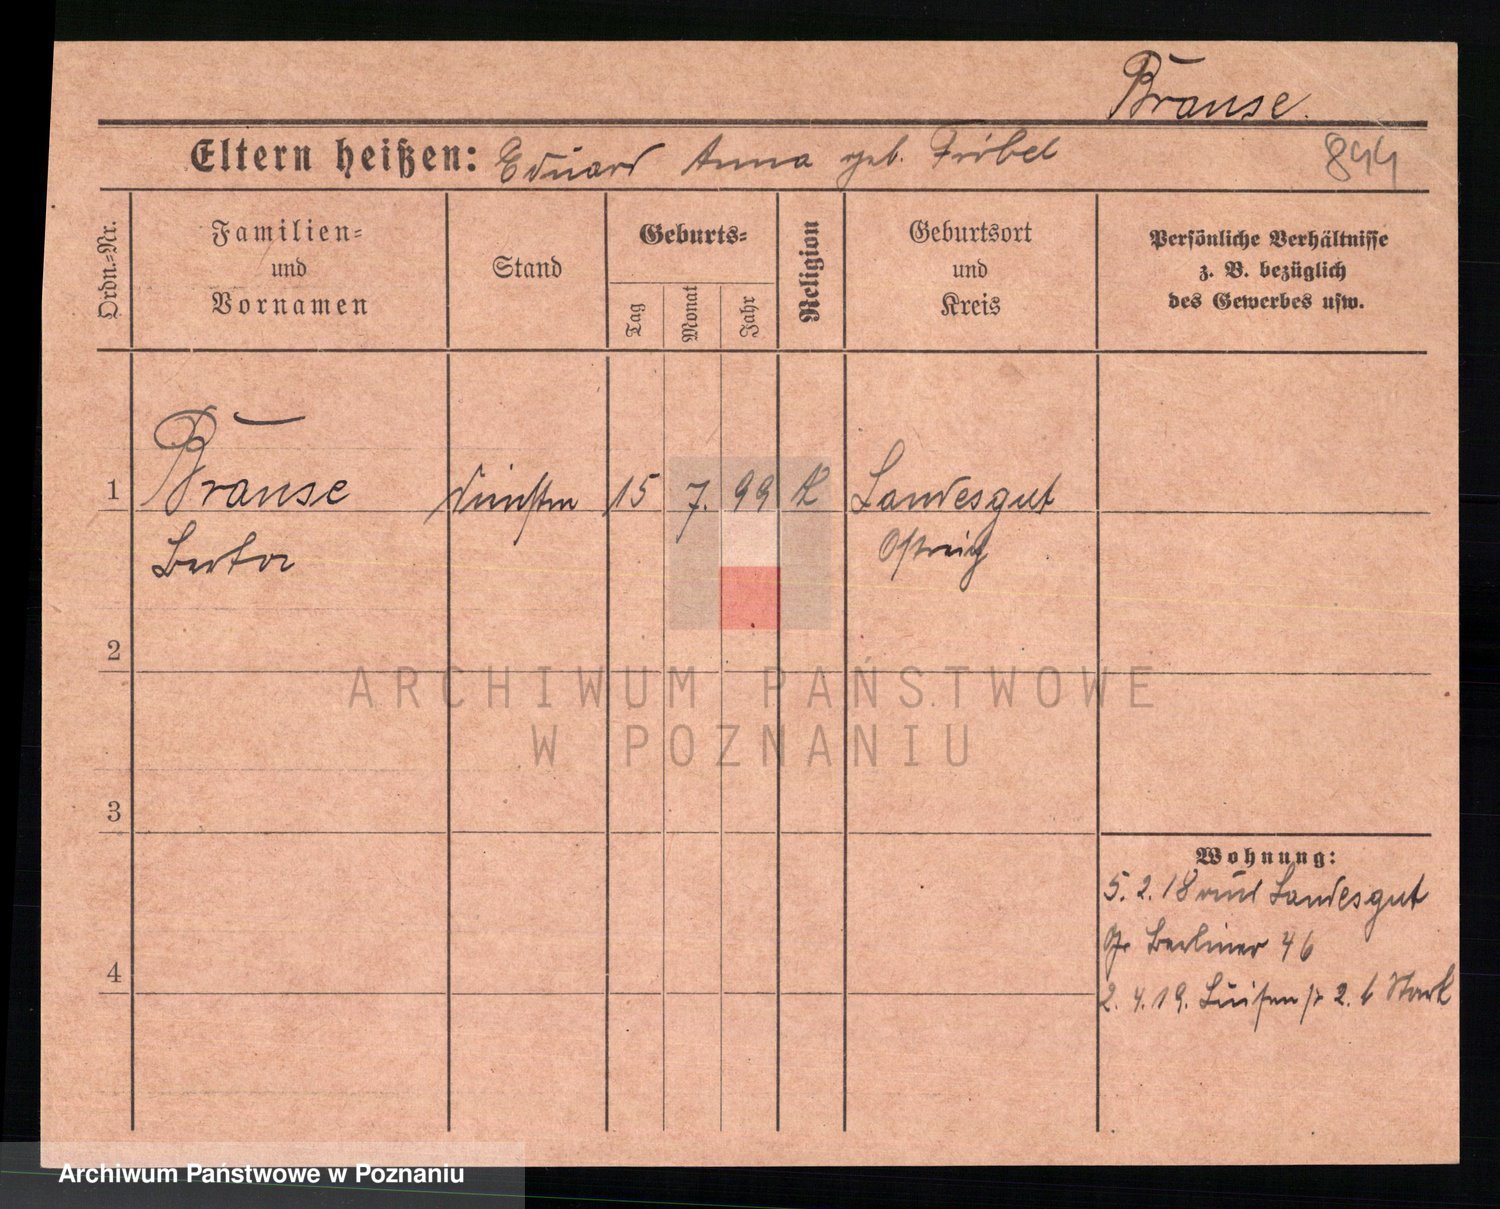 Brause.
Eltern heißen: Eduard Anna geb. Fribel
844
Ordn.-Nr.
Familien-
und
Vornamen
Stand
Geburts-
Tag
Monat
Jahr
Religion
Geburtsort
und
Kreis
Persönliche Verhältnisse
z. B. bezüglich
des Gewerbes usw.
1 Brause 15 7. 99 k Landesgut
Berta Ostreich
2
3
4
Wohnung:
5. 2. 18 Landesgut
Gr Berliner 46
2. 4. 19. Luisenstr 2. b Stark
ARCHIWUM PAŃSTWOWE
W POZNANIU
Archiwum Państwowe w Poznaniu